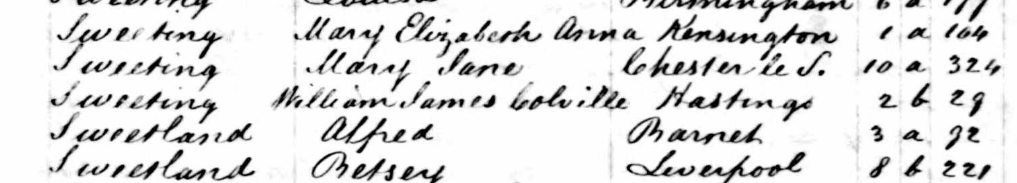 Birmingham 6 a
Sweeting Mary Elizabeth Anna Kensington 1 a 104
Sweeting Mary Jane Chester le S. 10 a 324
Sweeting William James Colville Hastings 2 b 29
Sweetland Alfred Barnet 3 a
Sweetland Betsey Liverpool 8 b 221